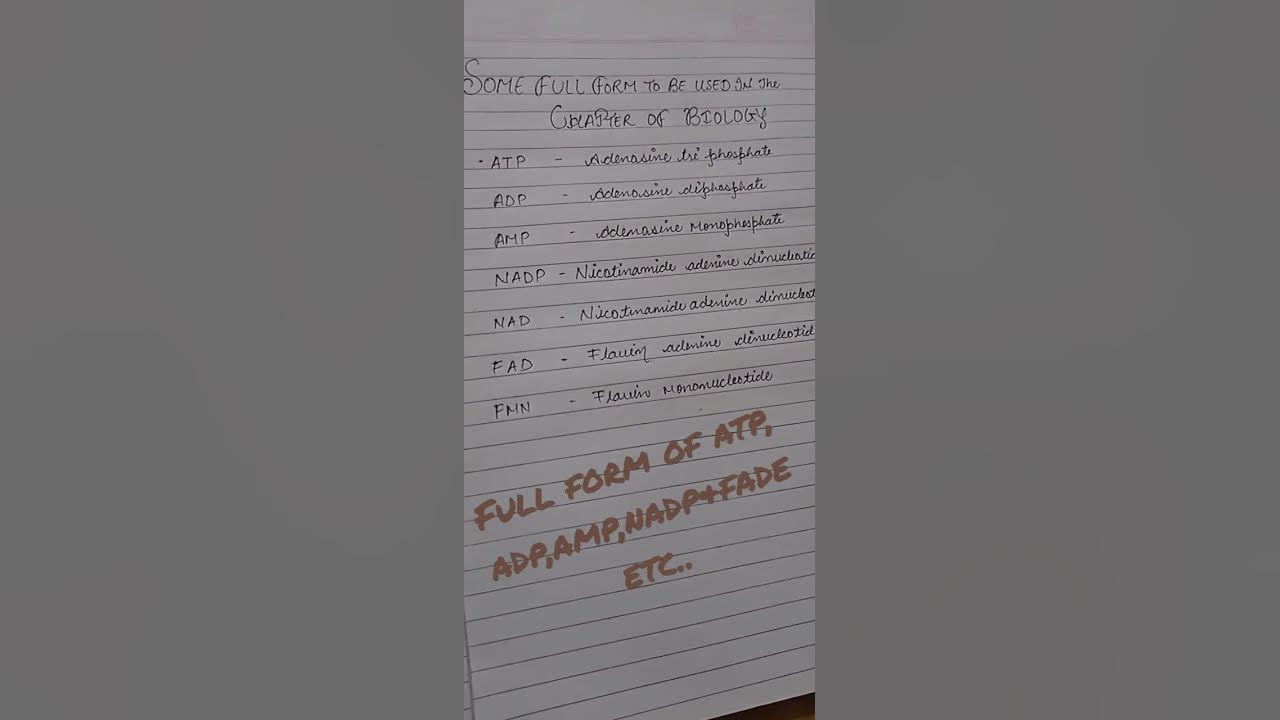 SOME FULL FORM TO BE USED IN The
CHAPTER OF BIOLOGY
· ATP - Adenosine tri phosphate
ADP - Adenosine diphosphate
AMP - Adenosine Monophosphate
NADP - Nicotinamide adenine dinucleotid
NAD - Nicotinamide adenine dinucleot
FAD - Flavin adenine dinucleotid
FMN - Flavin Mononucleotide
FULL FORM OF ATP,
ADP,AMP,NADP+FADE
ETC..